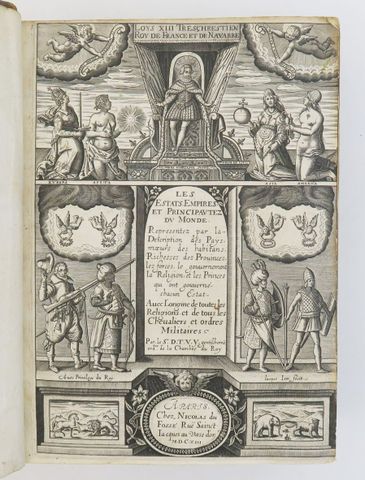 LOYS XIII TRESCHRESTIEN
ROY DE FRANCE ET DE NAVARRE
ASIE
LES
ESTATS EMPIRES
ET PRINCIPAUTEZ
DU MONDE
Representez par la
Description des Pays
mœurs des habitans
Richesses des Provinces
les forces, le gouvernement
la Religion et les Princes
qui ont gouverné
chacun Estat.
Avec l'origine de toutes les
Religions et de tous les
Chevaliers et ordres
Militaires.
Par le Sr. D.T.V.Y. gentilhome
ordre. de la Chambre du Roy
Avec Privilege du Roy
A PARIS.
Chez NICOLAS du
FOSSÉ Ruë Sainct
Iacques au Vase d'or
M·DC·XIII